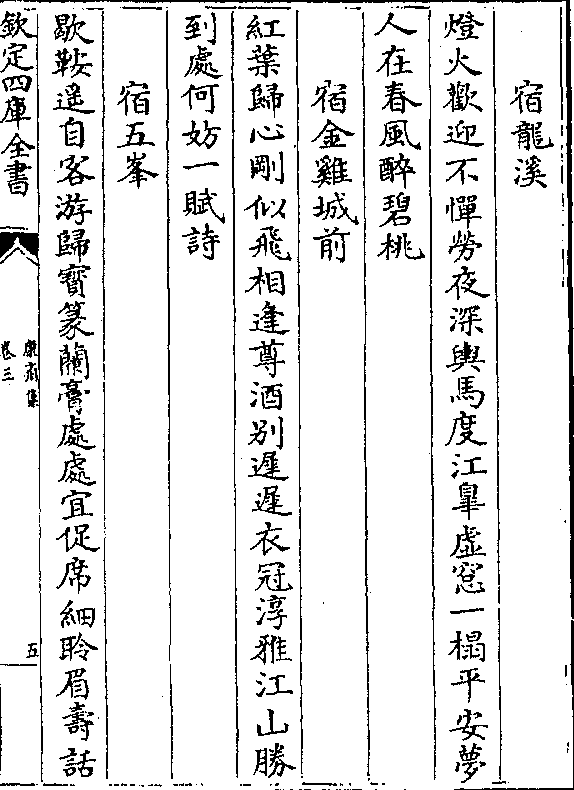 宿龍溪
燈火歡迎不憚勞夜深輿馬度江臯虛窓一榻平安夢
人在春風醉碧桃
宿金雞城前
紅葉歸心剛似飛相逢尊酒別遲遲衣冠淳雅江山勝
到處何妨一賦詩
宿五峯
歇鞍遥自客游歸寳篆蘭膏處處宜促席細聆眉壽話
欽定四庫全書
康齋集
卷三
五